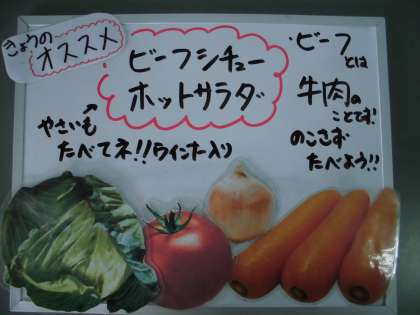 きょうの
オススメ
ビーフシチュー
ホットサラダ
やさいも
たべてネ!!ウインナー入り
・ビーフ
とは
牛肉の
ことです!
のこさず
たべよう!!